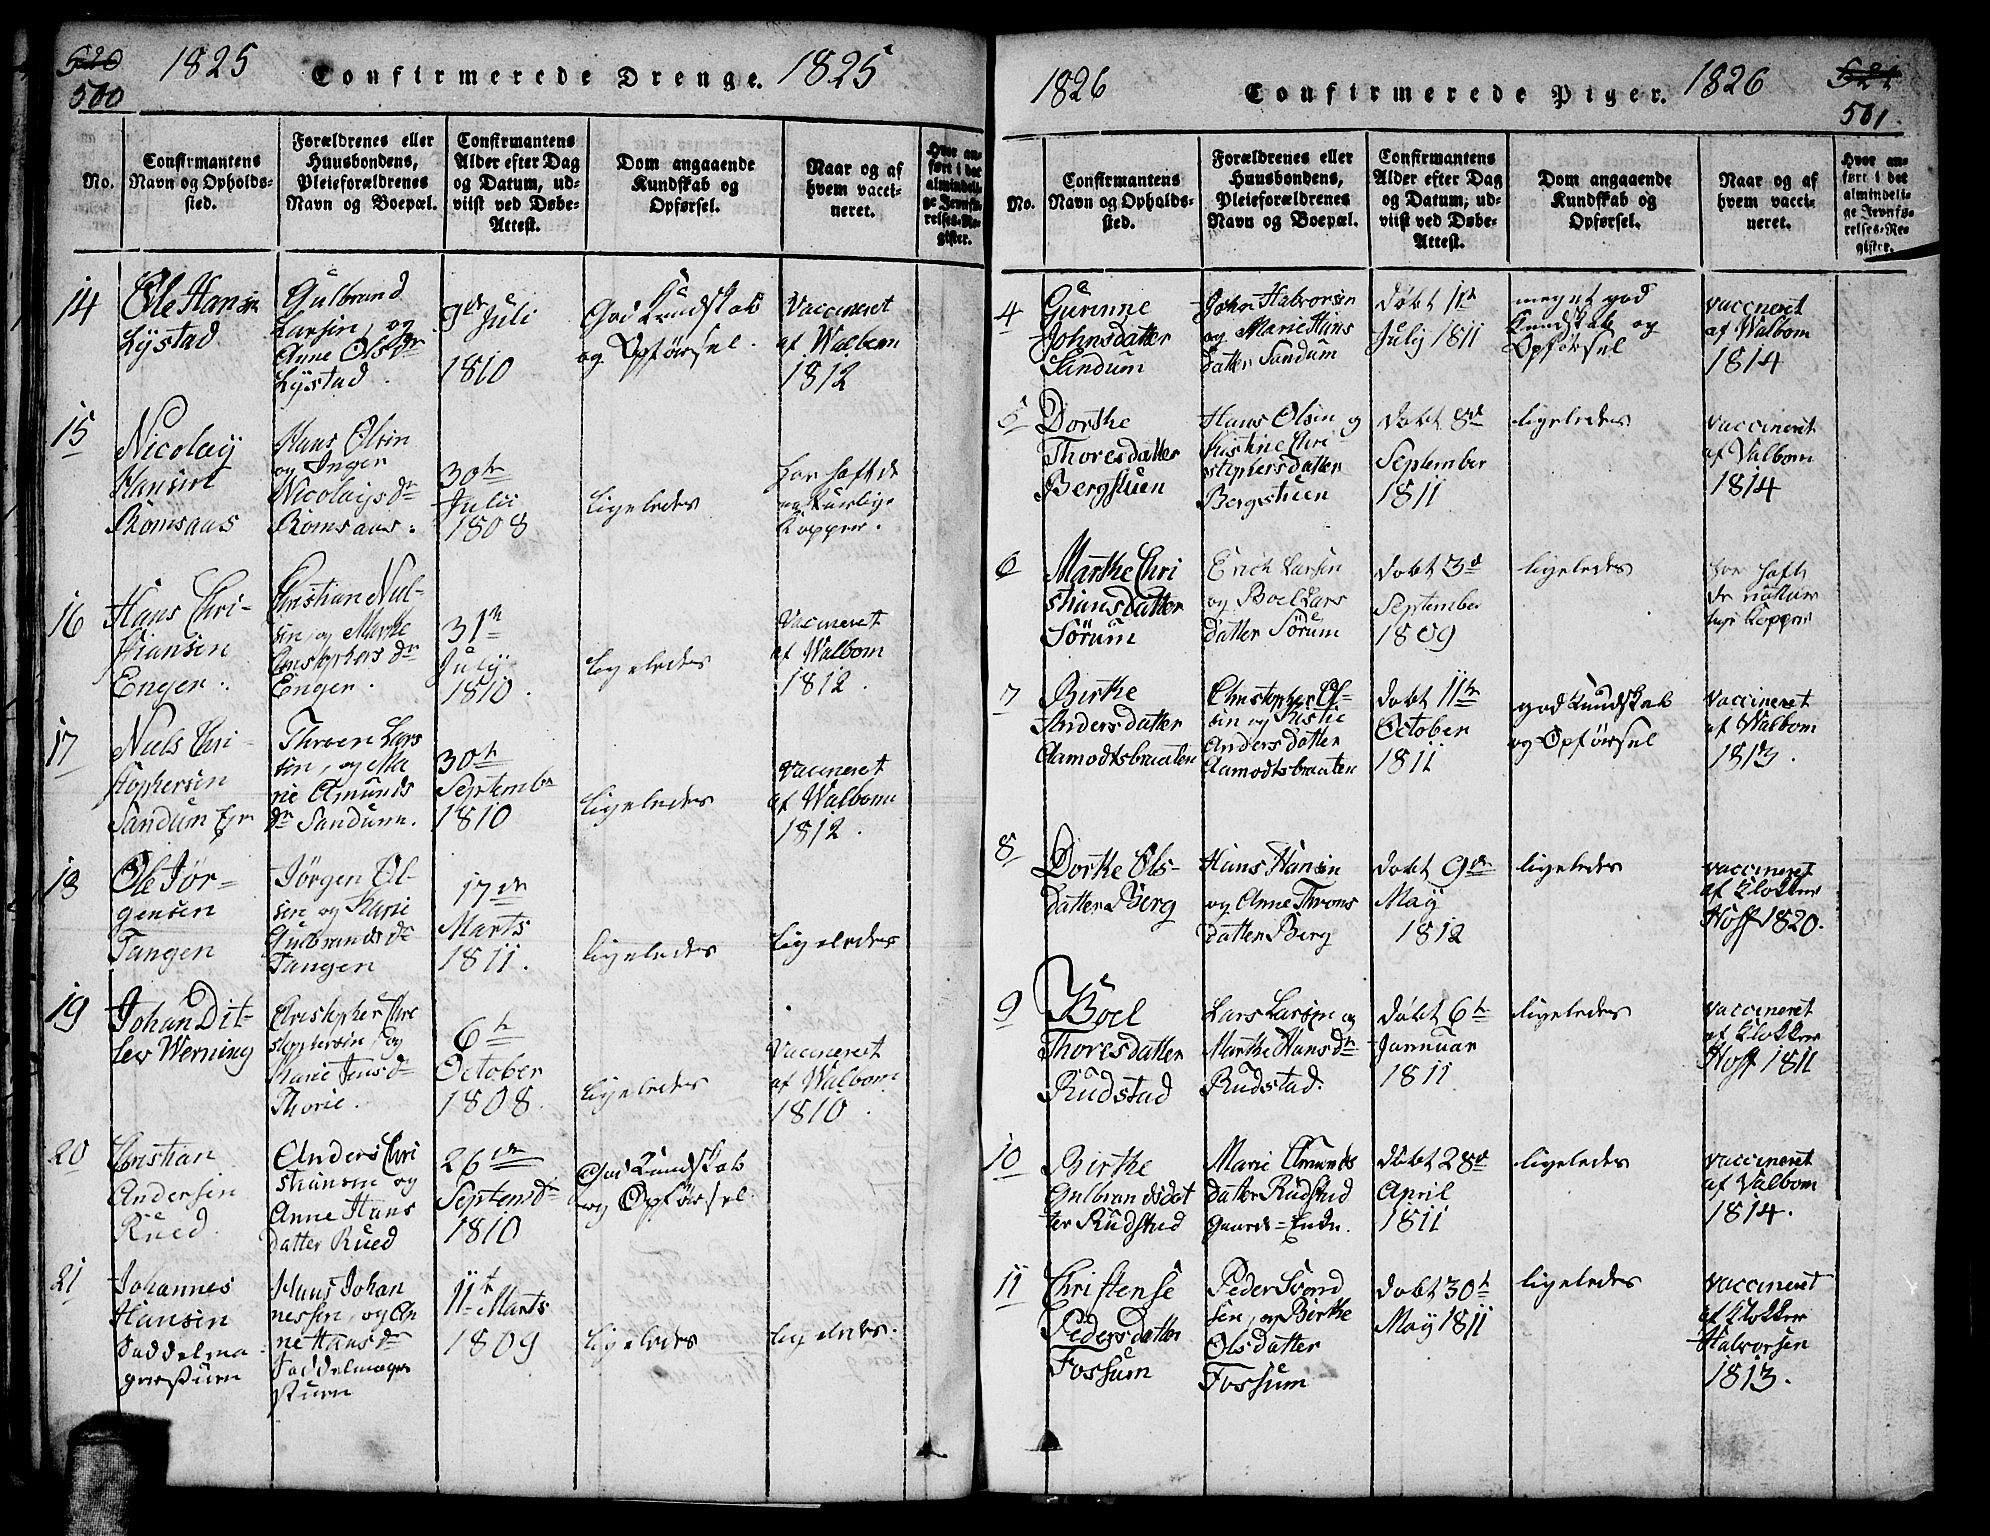 520
500
1825
Confirmerede Drenge.
1825
No.
Confirmantens
Navn og Opholds-
sted.
Forældrenes eller
Huusbondens,
Pleieforældrenes
Navn og Boepæl.
Confirmantens
Alder efter Dag
og Datum, ud-
viist ved Døbe-
Attest.
Dom angaaende
Kundskab og
Opførsel.
Naar og af
hvem vacci-
neret.
Hvor an-
ført i det
almindeli-
ge Jevnfø-
relses-Re-
gister.
14
Ole Hansen
Lystad
Gulbrand
Larsen, og
Anne Olsdr
Lystad.
9de Juli
1810
God Kundskab
og Opførsel.
Vaccineret
af Walbom
1812
15
Nicolay
Hansen
Romsaas
Hans Olsen
og Inger
Nicolaysdr
Romsaas.
30te
Julii
1808
ligeledes
har haft de
naturlige
Kopper.
16
Hans Chri-
stiansen
Enger.
Christian Nul-
sen og Marthe
Christophersdr
Enger.
31te
July
1810.
ligeledes
Vaccineret
af Walbom
1812.
17
Niels Chri-
stophersen
Sandum Eje
Throen Lars
sen, og Ma
rie Amunds
dr Sandum.
30te
Septembr
1810
ligeledes
Vaccineret
af Walbom
1812.
18
Ole Jør-
gensen
Tangen
Jørgen Ol-
sen og Karie
Gulbrandsdr
Tangen
17de
Marts
1811.
ligeledes
ligeledes
19
Johan Dit-
lev Werning
Christopher Chri
stophersen, og
Marie Jensdr
Thorie.
6te
October
1808.
ligeledes
Vaccineret
af Walbom
1810.
20
Christian
Andersen
Rued.
Anders Chri
stiansen og
Anne Hans
datter Rued
26de
Septembr
1810
God Kundskab
og Opførsel
21
Johannes
Hansen
Saddelma
gerstuen
Hans Johan
nessen, og An
ne Hansdr
Saddelmager
stuen
11te Marts
1809
ligeledes
ligeledes.
1826
Confirmerede Piger.
1826
521
501.
No.
Confirmantens
Navn og Opholds-
sted.
Forældrenes eller
Huusbondens,
Pleieforældrenes
Navn og Boepæl.
Confirmantens
Alder efter Dag
og Datum, ud-
viist ved Døbe-
Attest.
Dom angaaende
Kundskab og
Opførsel.
Naar og af
hvem vacci-
neret.
Hvor an-
ført i det
almindeli-
ge Jevnfø-
relses-Re-
gister.
4
Gurinne
Johnsdatter
Sandum
John Halvorsen
og Marie Hans
datter Sandum
døbt 11te
July 1811
meget god
Kundskab og
Opførsel
vaccineret
af Walbom
1814
5
Dorthe
Thoresdatter
Bergstuen
Hans Olsen og
Kistine Chri
stophersdatter
Bergstuen
døbt 8de
September
1811
ligeledes
vaccineret
af Valbom
1814
6
Marthe Chri
stiansdatter
Sørum
Erich Larsen
og Boel Lars
datter Sørum
døbt 3de
September
1809
ligeledes
har haft
de natur
lige Kopper
7
Birthe
Andersdatter
Aamodtsbraaten
Christopher Ol-
sen og Kistie
Andersdatter
Aamodtsbraaten
døbt 11te
October
1811
god Kundskab
og Opførsel
vaccineret
af Walbom
1813.
8
Dorthe Ols-
datter Berg
Hans Hansen
og Anne Throns
datter Berg
døbt 9de
May
1812
ligeledes
vaccineret
af Klokker
Hoff 1820.
9
Boel
Thoresdatter
Rudstad
Lars Larsen og
Marthe Hansdr
Rudstad.
døbt 6te
Januar
1811.
ligeledes
vaccineret
af Klokker
Hoff 1811
10
Birthe
Gulbrandsdat
ter Rudstad
Marie Amunds
datter Rudstad
døbt 28de
April
1811
ligeledes
vaccineret
af Valbom
1814.
11
Christense
Pedersdatter
Fossum
Peder Svend
sen, og Birthe
Olsdatter
Fossum
døbt 30te
May 1811
ligeledes
vaccineret
af Klokker
Halvorsen
1813.